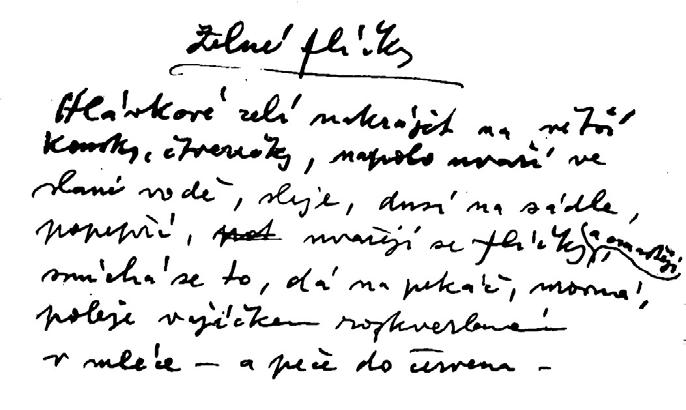 Zelné flíčky
Hlávkové zelí nakrájet na větší
kousky, čtverečky, napolo uvaří ve
slané vodě, sleje, dusí na sádle,
popepří, uvařejí se flíčky, a omastějí
smíchá se to, dá na pekáč, urovná,
poleje vajíčkem rozkverlaném
v mléce – a peče do červena –